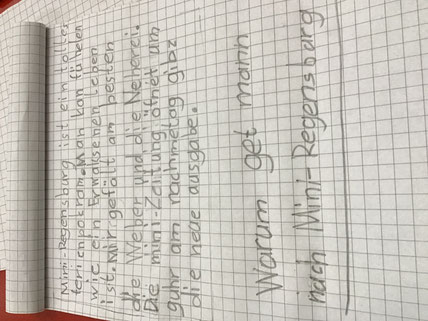 Mini-Regensburg ist ein tolles
ferienpokram. Man kan fürelen
wie ein Erwaksenen Leben
ist. Mir gefält am besten
die Weber und die Neherei.
Die mini-Zeitung öfnet um
9uhr am nachmetag gibz
die neue ausgabe.
Warum get mann
nach Mini-Regensburg